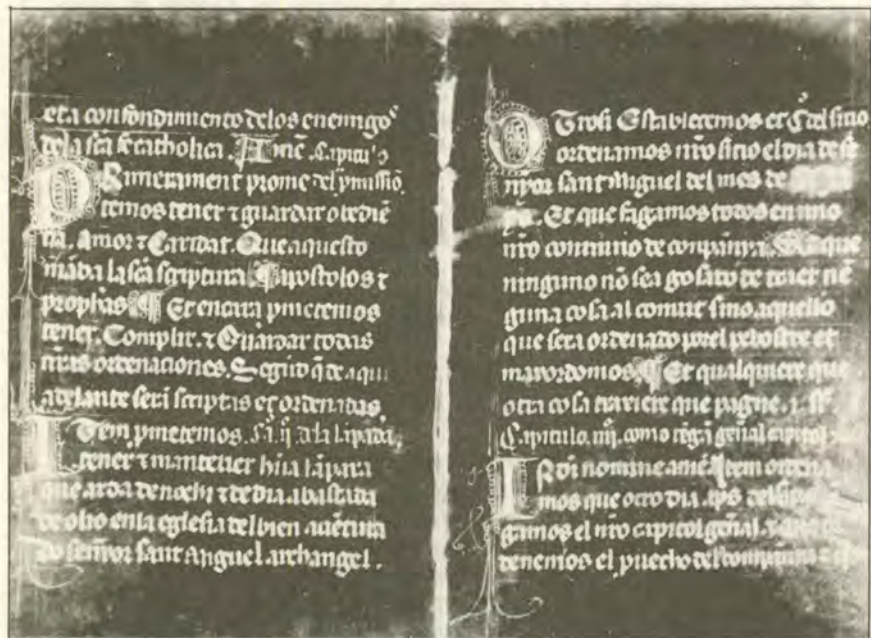 et a confondimento delos enemigos
dela sca fe catholica. Amē. Capitulo
PRimerament prome del pmissiō.
temos tener ⁊ guardar obediē
cia. Amor ⁊ Caridat. Que aquesto
māda la sca scriptura. Apostolos ⁊
prophās ¶ Et encara pmetemos
tener. Complir. ⁊ Guardar todas
ordenaciones. Segūd q̄ de aqui
adelante serā scriptas et ordenadas.
ITem pmetemos. dela lāpada.
tener ⁊ mantener lāpara
que arda de noche ⁊ de dia abastada
de olio en la eglesia del bien auētura
do senyor sant Miguel archangel.
OTrosi Establecemos et del sitio
ordenamos nro sitio el dia de
nyor sant Miguel del mes de
Et que fagamos todos en uno
nro conuiuio de companya. que
ninguno nō sea gosado de traer nē
guna cosa al comer sino aquello
que sera ordenado por el pebostre et
mayordomos ¶ Et qualquiere que
otra cosa traxiere que pague. j. s.
Capitulo. iiij. como tēgā genāl capitol
IN dī nomine amē. Item ordena
mos que otro dia. del
gamos el nro capitol genāl. ⁊
tenemos el puecho del